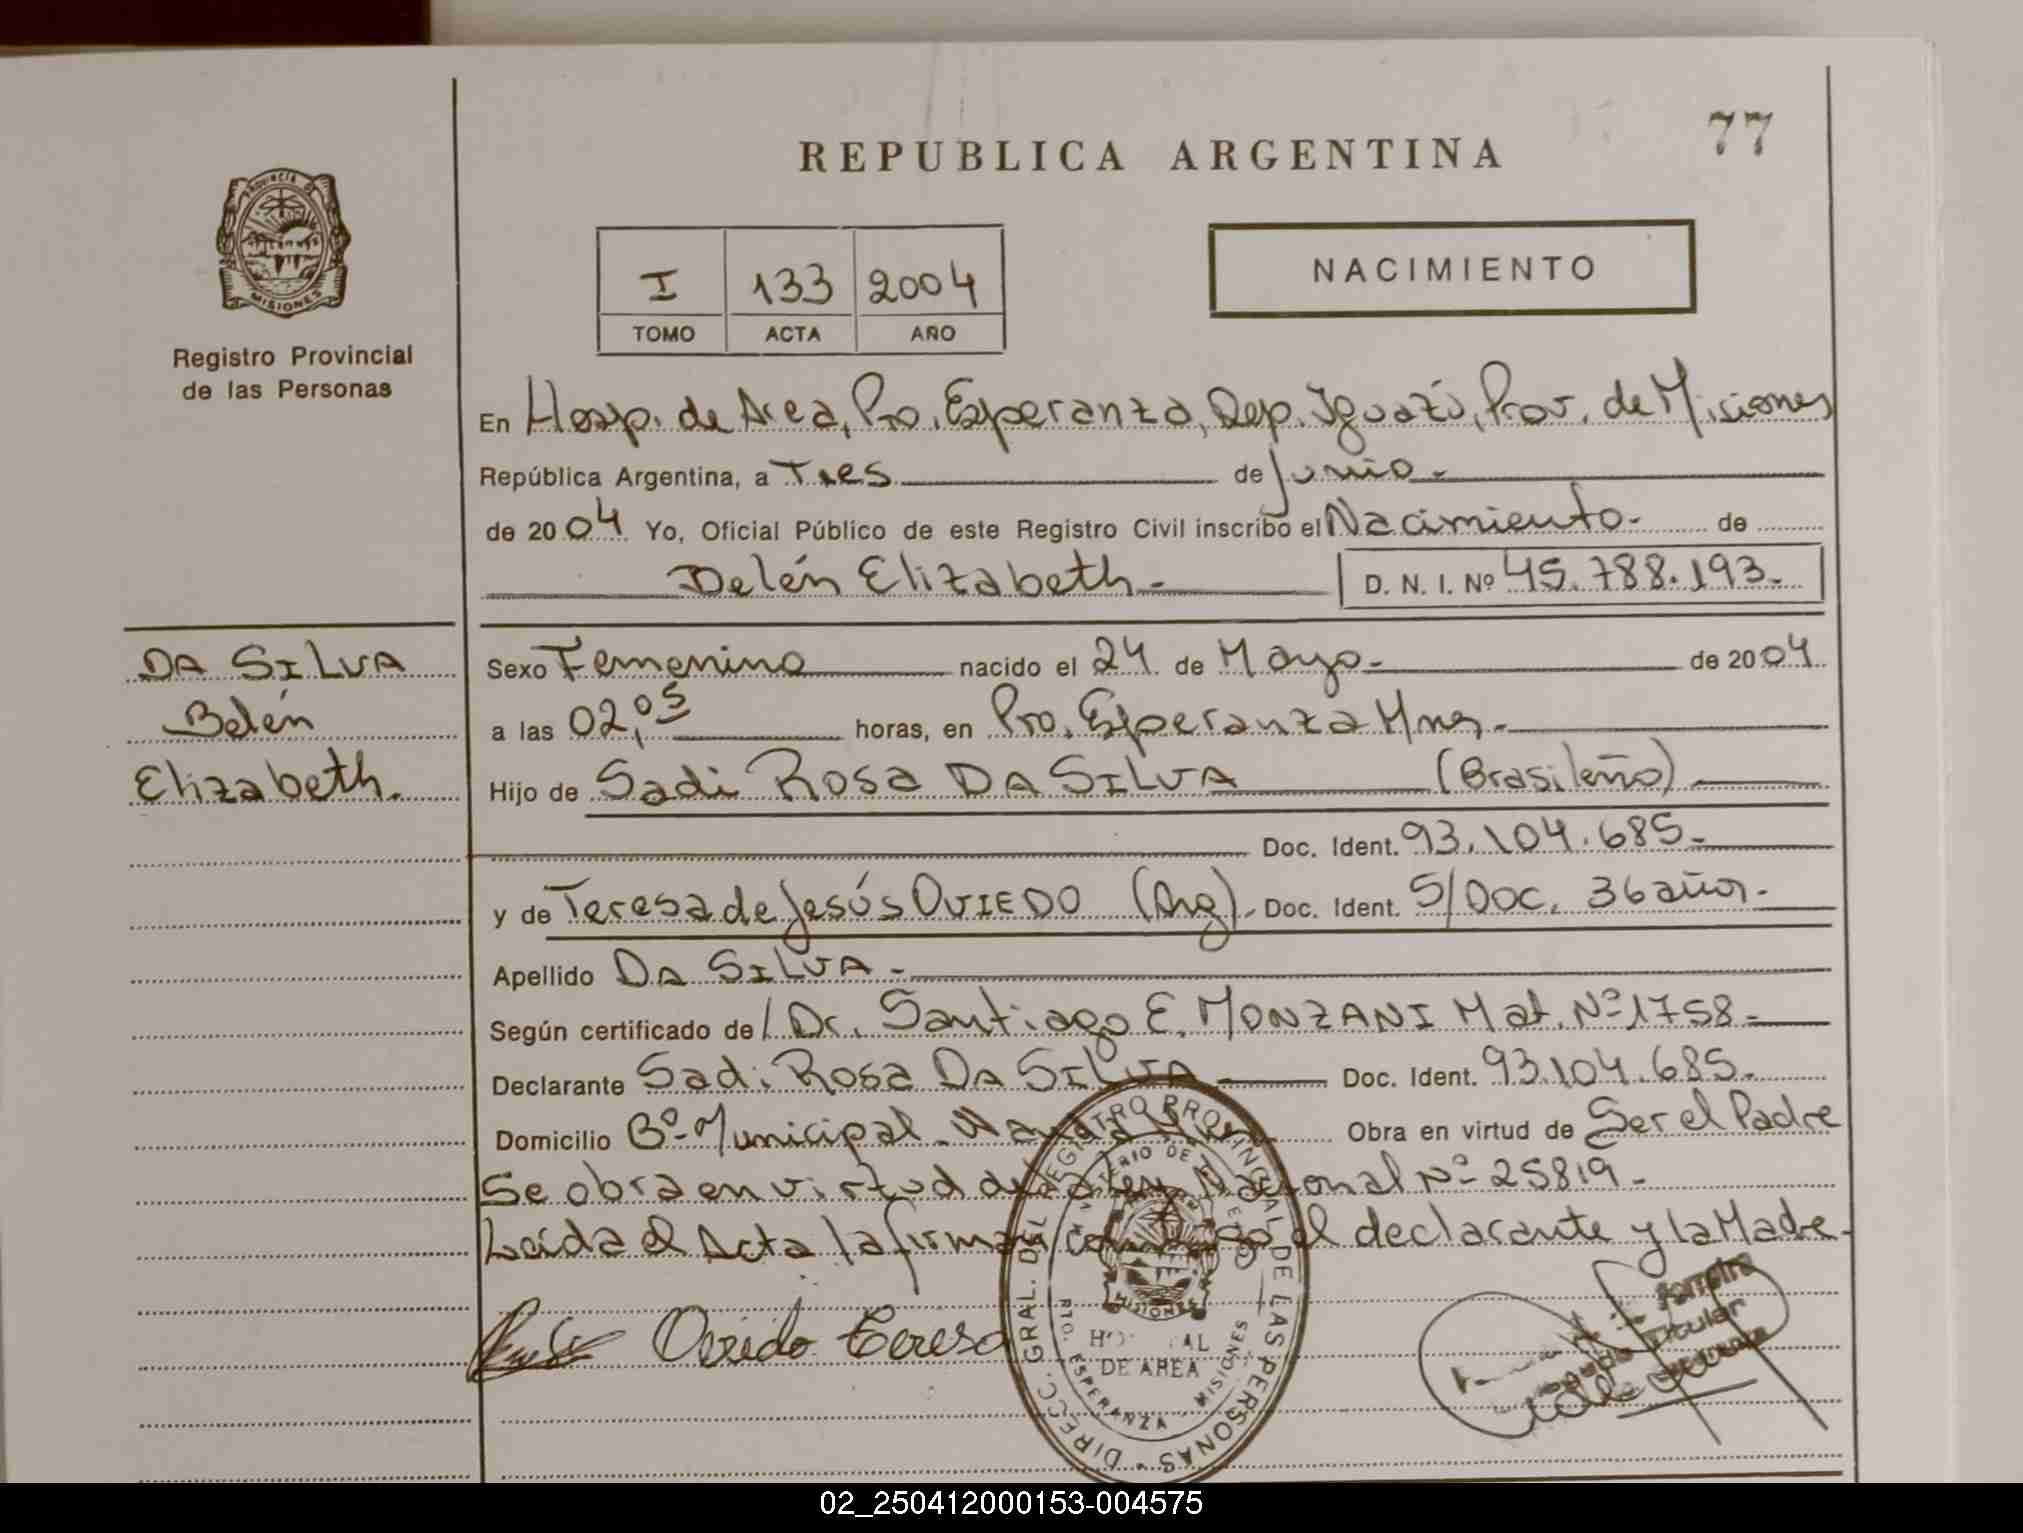 77
REPUBLICA ARGENTINA
PROVINCIA DE
MISIONES
Registro Provincial
de las Personas
I 133 2004
TOMO ACTA AÑO
NACIMIENTO
En Hosp. de Area, Pto. Esperanza, Dep. Iguazú, Prov. de Misiones
República Argentina, a Tres de Junio.-
de 2004 Yo, Oficial Público de este Registro Civil inscribo el Nacimiento- de
Belén Elizabeth.- D. N. I. Nº 45.788.193.-
DA SILVA
Belén
Elizabeth.
Sexo Femenino nacido el 24 de Mayo.- de 2004
a las 02,05 horas, en Pto. Esperanza Mnes.-
Hijo de Sadi Rosa DA SILVA (Brasileño)
Doc. Ident. 93.104.685.-
y de Teresa de Jesús OVIEDO (Arg). Doc. Ident. S/DOC. 36 años.-
Apellido DA SILVA.-
Según certificado de/ Dr. Santiago E. MONZANI Mat. Nº 1758.-
Declarante Sadi Rosa DA SILVA Doc. Ident. 93.104.685.-
Domicilio Bº Municipal. Obra en virtud de Ser el Padre
Se obra en virtud de la Ley Nacional Nº 25819.-
Leída el Acta la firman conmigo el declarante y la Madre.-
Oviedo Teresa
DIRECC. GRAL. DEL REGISTRO PROVINCIAL DE LAS PERSONAS
MINISTERIO DE
MISIONES
HOSPITAL
DE AREA
PTO. ESPERANZA - MISIONES
Titular
02_250412000153-004575